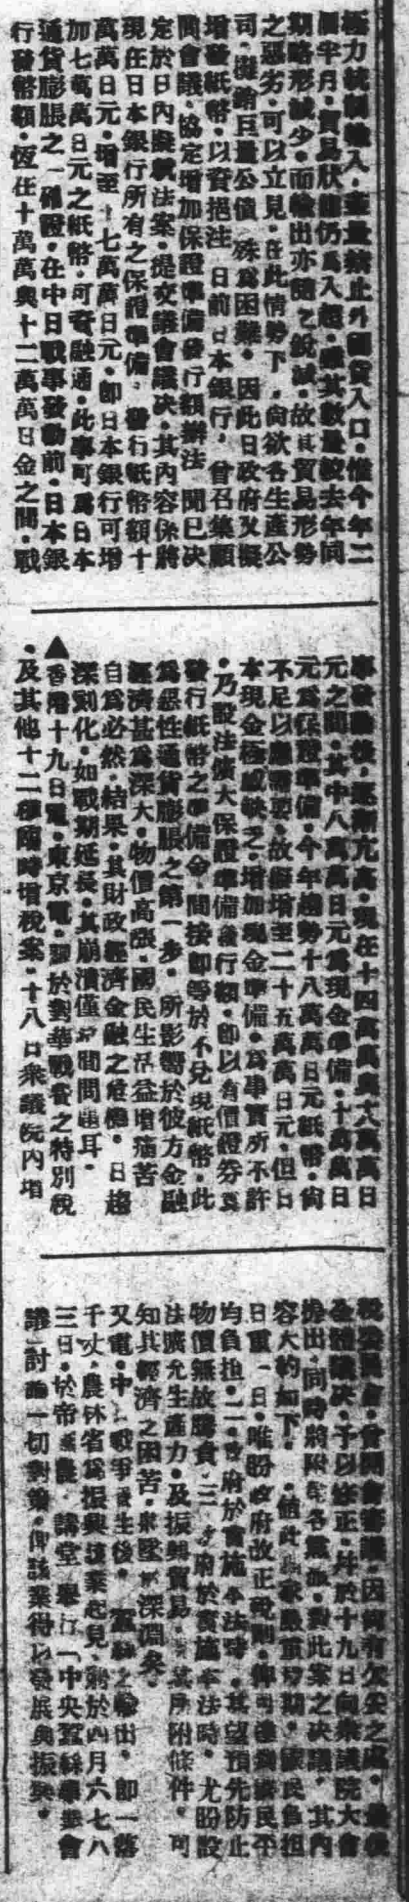 極力統制輸入·並嚴禁止外國貨入口·惟今年二
個半月·貿易狀態仍為入超·雖其數量較去年同
期略形減少·而輸出亦隨之銳減·故其貿易形勢
之惡劣·可以立見·在此情勢下·尚欲各生產公
司·攤銷巨量公債·殊為困難·因此日政府又擬
增發紙幣·以資挹注·日前日本銀行·曾召集顧
問會議·協定增加保證準備發行額辦法·聞已決
定於日內擬就法案·提交議會議決·其內容係將
現在日本銀行所有之保證準備·發行紙幣額十
萬萬日元·增至十七萬萬日元·即日本銀行可增
加七萬萬日元之紙幣·可資融通·此事可為日本
通貨膨脹之一確證·在中日戰事發動前·日本銀
行發幣額·恆在十萬萬與十二萬萬日金之間·戰
事發動後·逐漸亢高·現在十四萬萬與十八萬萬日
元之間·其中八萬萬日元為現金準備·十萬萬日
元為保證準備·今年趨勢十八萬萬日元紙幣·尚
不足以應需要·故擬增至二十五萬萬日元·但日
本現金極感缺乏·增加現金準備·為事實所不許
·乃設法擴大保證準備發行額·即以有價證券為
發行紙幣之準備金·間接即等於不兌現紙幣·此
為惡性通貨膨脹之第一步·所影響於彼方金融
經濟甚為深大·物價高漲·國民生活益增痛苦
自為必然·結果·其財政經濟金融之危機·日趨
深刻化·如戰期延長·其崩潰僅為時間問題耳·
▲香港十九日電·東京電·關於對華戰費之特別稅
·及其他十二種臨時增稅案·十八日衆議院內增
稅委員會·曾開會審議·因尚有欠妥之處·最後
全體議決·予以修正·并於十九日向衆議院大會
提出·同時將附各黨派·對此案之決議·其內
容大約如下·值此嚴重時期·國民負担
日重一日·唯盼政府改正稅則·俾國民平
均負担·二·政府於實施本法時·其望預先防止
物價無故騰貴·三·政府於實施本法時·尤盼設
法擴充生產力·及振興貿易·其所附條件·可
知其經濟之困苦·墜於深淵矣·
又電·中日戰爭發生後·蠶絲之輸出·即一落
千丈·農林省為振興該業起見·將於四月六七八
三日·於帝農·講堂·舉行「中央蠶絲學業會
議」討論一切對策·俾該業得以發展與振興·